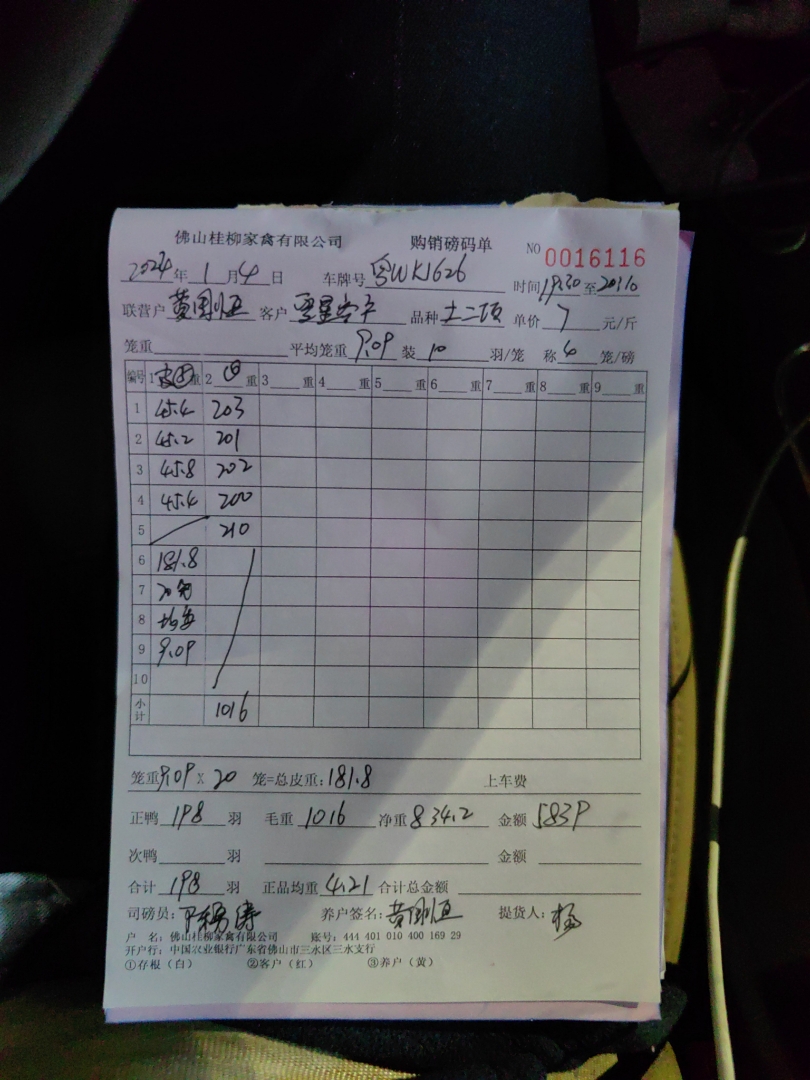 佛山桂柳家禽有限公司 购销磅码单 NO 0016116
2024年1月4日 车牌号粤WK1626 时间19:30至20:10
联营户 黄国恒 客户 品种 土二项 单价 7 元/斤
笼重 平均笼重 9.09 装 10 羽/笼 称 4 笼/磅
编号 1 皮 重 2 重 3 重 4 重 5 重 6 重 7 重 8 重 9 重
1 45.4 203
2 45.2 201
3 45.8 202
4 45.4 200
5 210
6 181.8
7 20
8 均重
9 9.09
10
小计 1016
笼重9.09 X 20 笼=总皮重:181.8 上车费
正鸭 198 羽 毛重 1016 净重 834.2 金额 5839
次鸭 羽 金额
合计 198 羽 正品均重 4.21 合计总金额
司磅员: 养户签名:黄国恒 提货人:杨
户 名:佛山桂柳家禽有限公司 账号:444 401 010 400 169 29
开户行:中国农业银行广东省佛山市三水区三水支行
①存根(白) ②客户(红) ③养户(黄)